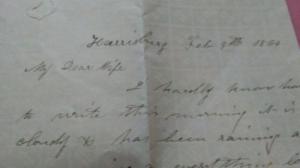 Harrisburg Feb 9th 1864
My Dear Wife
I hardly know how
to write this morning it is
cloudy & has been raining a
everything